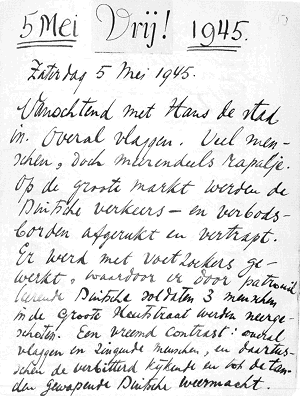 5 Mei Vrij! 1945.
Zaterdag 5 Mei 1945.
Vanochtend met Hans de stad
in. Overal vlaggen. Veel men-
schen, doch meerendeels rapalje.
Op de groote markt werden de
Duitsche verkeers- en verbods-
borden afgerukt en vertrapt.
Er werd met voetzoekers ge-
werkt, waardoor er door patrouil
leerende Duitsche soldaten 3 menschen
in de Groote Houtstraat werden neerge-
schoten. Een vreemd contrast: overal
vlaggen en zingende menschen, en daartus-
schen de verbitterd kijkende en tot de tan-
den gewapende Duitsche weermacht.